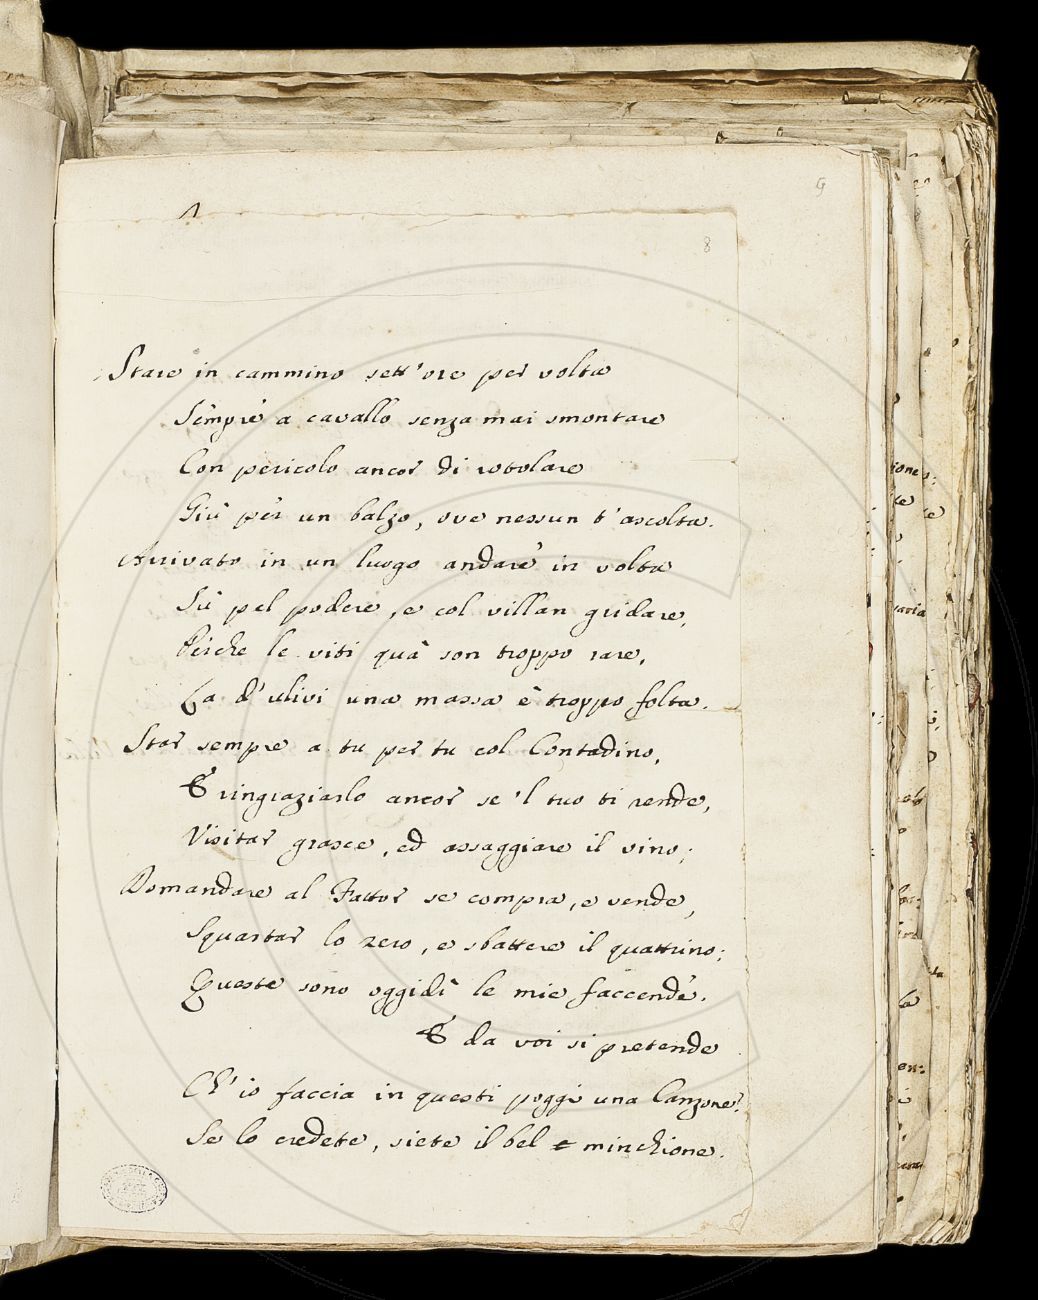 9
8
Stare in cammino sett'ore per volta
Sempre a cavallo senza mai smontare
Con pericolo ancor di rotolare
Giù per un balzo, ove nessun t'ascolta.
Arrivato in un luogo andare in volta
Sù pel podere, e col villan gridare,
Perche le viti quà son troppo rare,
La d'ulivi una massa è troppo folta.
Star sempre a tu per tu col Contadino,
E ringraziarlo ancor se 'l tuo ti rende,
Visitar grasce, ed assaggiare il vino;
Domandare al Fattor se compra, e vende,
Squartar lo zero, e sbattere il quattrino;
Queste sono oggidì le mie faccende.
E da voi si pretende
Ch'io faccia in questi poggi una Canzone?
Se lo credete, siete il bel minchione.